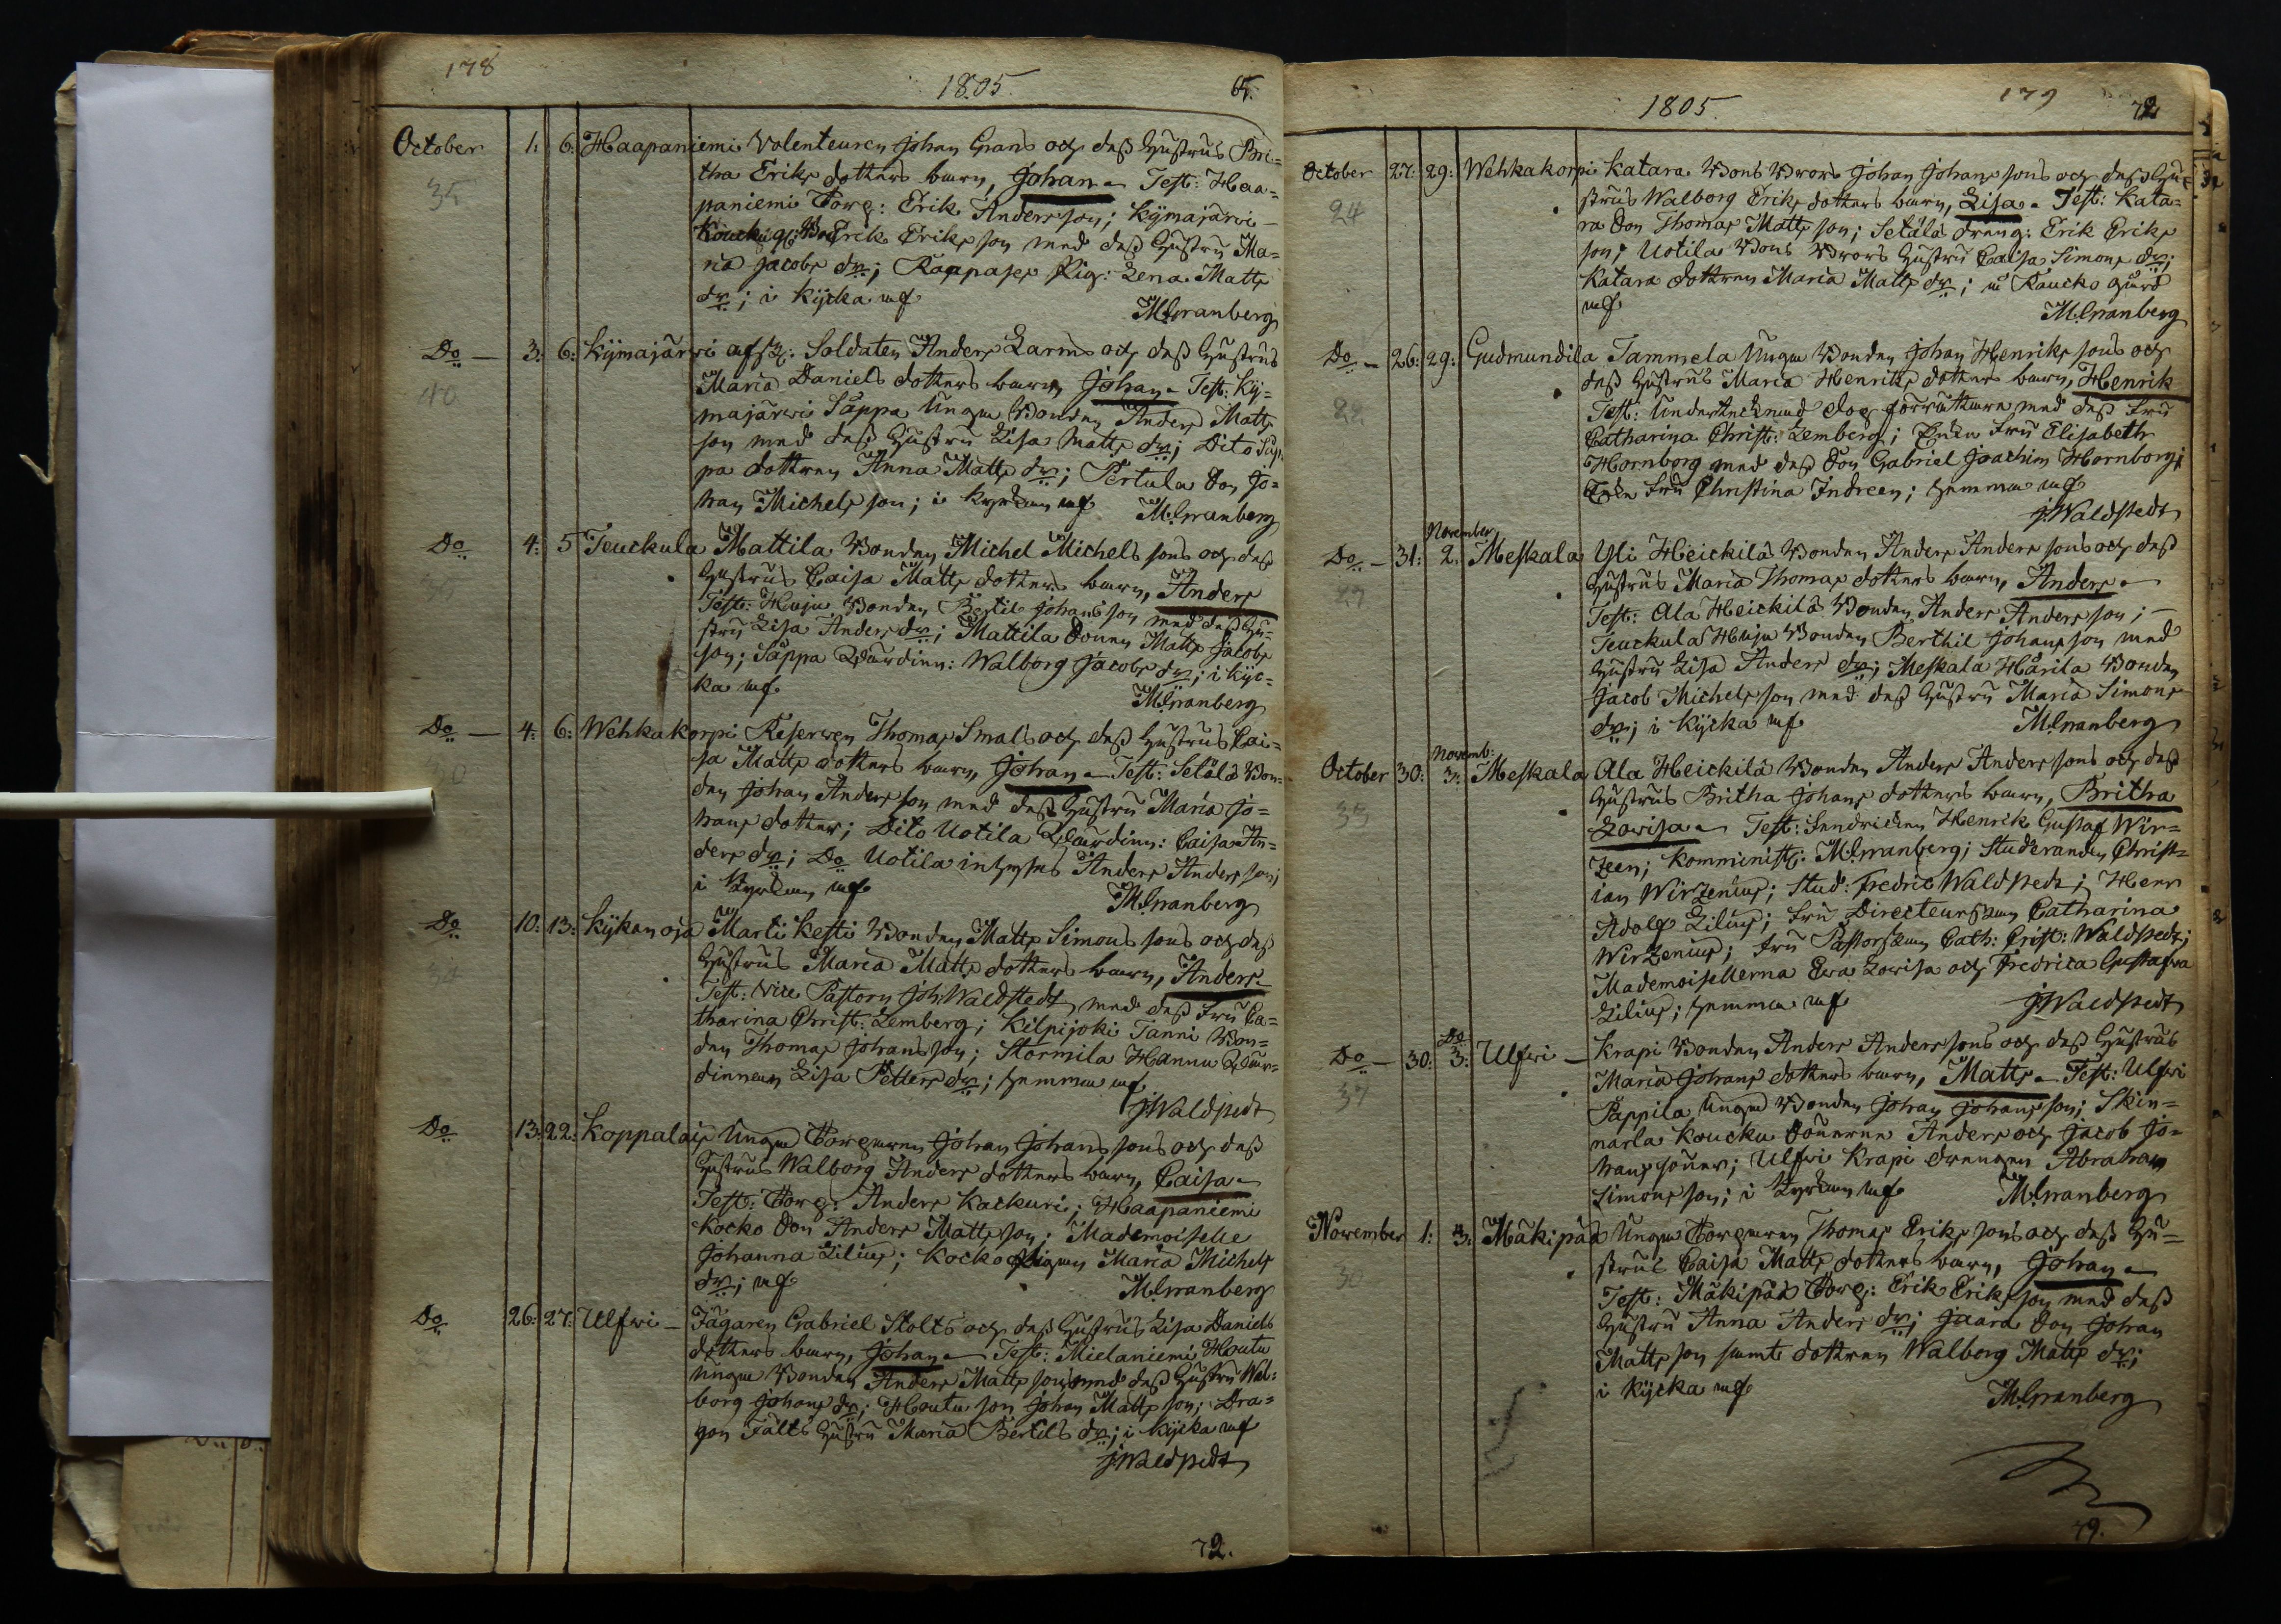 178
1805.
65.
October 1: 6: Haapaniemi Volenteuren Johan Grans och dess Hustrus Bri=
35 tha Eriks dotters barn, Johan – Test: Haa=
paniemi Torp: Erik Andersson; Kÿmajärvi –
Koucku Erik Eriks son med dess Hustru Ma=
ria Jacobs dr; Kaapases Pig: Lena Matts
dr; i Kÿcka uf
M:Granberg
Do – 3: 6: Kÿmajärwi afsk: Soldaten Anders Larms och dess Hustrus
40 Maria Daniels dotters barn Johan – Test: Kÿ=
majärwi Säppa Unga Bonden Anders Matts
son med dess Hustru Lisa Matts dr; Dito Säp=
pa dottren Anna Matts dr; Pertula Son Jo=
han Michels son; i Kyrkan uf
M:Granberg
Do 4: 5 Teuckula Mattila Bonden Michel Michels sons och dess
Hustrus Caisa Matts dotters barn, Anders
Test: Huju Bonden Bertil Johans son med dess Hu=
stru Lisa Anders dr; Mattila Sonen Matts Jacobs
son; Säppa Wärdinn: Walborg Jacobs dr; i Kÿc=
ka uf.
M:Granberg
Do – 4: 6: Wehkakorpi Reserven Thomas Smals och dess Hustrus Cai=
30 sa Matts dotters barn, Johan – Test: Setälä Bon=
den Johan Anders son med dess Hustru Maria Jo=
hans dotter; Dito Uotila Wärdinn: Caisa An=
ders dr; Do Uotila inhyses Anders Anders son;
i Kyrkan uf
M:Granberg
Do 10: 13: Kÿkänoja Marti Kesti Bonden Matts Simons sons och dess
Hustrus Maria Matts dotters barn, Anders –
Test: Vice Pastorn Joh: Waldstedt med dess Fru Ca=
tharina Christ: Lemberg; Kilpijoki Tanni Bon=
den Thomas Johans son; Stormila Hannu Wär=
dinnan Lisa Petters dr; hemma uf
J:Waldstedt
Do 13: 22: Koppalais Unga Torparen Johan Johans sons och dess
Hustrus Walborg Anders dotters barn, Caisa –
Test: Torp: Anders Kackuri; Haapaniemi
Kocko Son Anders Matts son; Mademoiselle
Johanna Lilius; Kocko Pigan Maria Michels
dr; uf
M:Granberg
Do 26: 27: Ulfwi – Jägaren Gabriel Stolts och dess Hustrus Lisa Daniels
dotters barn, Johan – Test: Mielaniemi Houtu
Unga Bonden Anders Matts son med dess Hustru Wal=
borg Johans dr; Houtu son Johan Matts son; Dra=
gon Fälts Hustru Maria Bertils dr; i Kÿcka uf
J:Waldstedt
72.
1805.
179
72
October 27: 29: Wehkakorpi Katara Bond Brors Johan Johans sons och dess Hu=
24 strus Walborg Eriks dotters barn, Lisa – Test: Kata=
ra Son Thomas Matts son; Setälä Dräng: Erik Eriks
son; Uotila Bond Brors Hustru Caisa Simons dr;
Katara dottren Maria Matts dr; i Raucko gård
uf
M:Granberg
Do – 26: 29: Gudmundila Tammela Unga Bonden Johan Henriks sons och
22 dess Hustrus Maria Henriks dotters barn, Henrik
Test: Undertecknad dog förrättare med dess Fru
Catharina Christ: Lemberg; Enke Fru Elisabeth
Hornborg med dess Son Gabriel Joachim Hornborg;
Enke Fru Christina Indreen; hemma uf
J:Waldstedt
November
Do – 31: 2. Meskala Yli Heickilä Bonden Anders Anders sons och dess
27 Hustrus Maria Thomas dotters barn, Anders –
Test: Ala Heickilä Bonden Anders Anders son; –
Teuckula Huju Bonden Berthil Johans son med
Hustru Lisa Anders dr; Meskala Härila Bonden
Jacob Michels son med dess Hustru Maria Simons
dr; i Kÿcka uf
M:Granberg
Novemb:
October 30: 3: Meskala Ala Heickilä Bonden Anders Anders sons och dess
33 Hustrus Britha Johans dotters barn, Britha
Lowisa – Test: Henrik Gustaf Wir=
zeen; Kommnist: M:Granberg; Studeranden Christ=
ian Wirzenius; Stud: Fredric Waldstedt; Herr
Adolf Lilius; Fru Directeurskan Catharina
Wirzenius; Fru Pastorskan Cath: Crist: Waldstedt;
Mademoisellerna Ewa Lowisa och Fredrica Gustafwa
Lilius; hemma uf
J:Waldstedt
Do
Do – 30: 3: Ulfwi – Krapi Bonden Anders Anders sons och dess Hustrus
37 Maria Johans dotters barn, Matts – Test: Ulfwi
Pappila Unga Bonden Johan Johans son; Skin=
narla Koucku Sönerne Anders och Jacob Jo=
hans söner; Ulfwi Krapi drengen Abraham
Simons son; i Kyrkan uf
M:Granberg
November 1: 3: Mäkipää Unga Torparen Thomas Eriks sons och dess Hu=
30 strus Caisa Matts dotters barn, Johan –
Test: Mäkipää Torp: Erik Eriks son med dess
Hustru Anna Anders dr; Jaara Son Johan
Matts son samt dottren Walborg Matts dr;
i Kÿcka uf
M:Granberg
79.